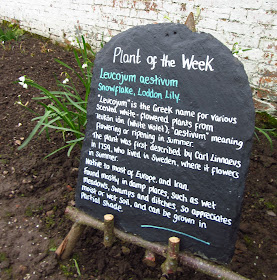 Plant of the Week
Leucojum aestivum
Snowflake, Loddon Lily.
"Leucojum" is the Greek name for various
Scented white-flowered plants from
ion (white Violet). "Aestivum" meaning
flowering or ripening in Summer.
The plant was first described by Carl Linnaeus
in 1759, who lived in Sweden, where it flowers
in Summer.
Native to most of Europe and Iran.
Found mostly in damp places, such as wet
Meadows, Swamps and ditches. So appreciates
moist or wet Soil, and can be grown in
Partial Shade.